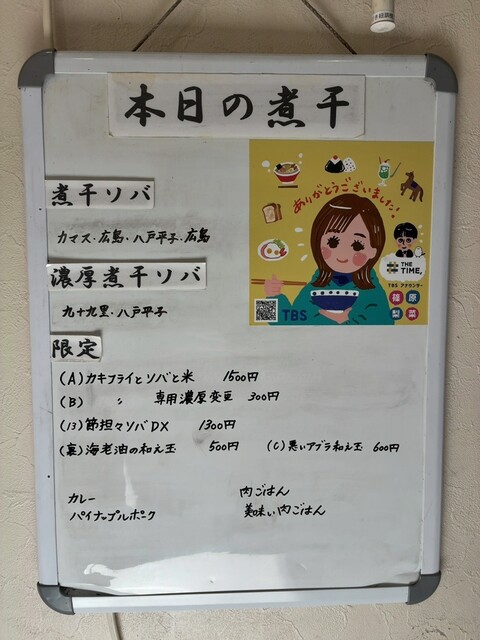 本日の煮干
煮干ソバ
カマス・広島・八戸平子・広島
濃厚煮干ソバ
九十九里・八戸平子
限定
(A) カキフライとソバと米 1500円
(B) 〃 専用濃原変豆 300円
(13) 節担々ソバDX 1300円
(裏) 海老油の和え玉 500円 (C) 悪いアブラ和え玉 600円
カレー 肉ごはん
パイナップルポーク 美味い肉ごはん
ありがとうございました!
THE
TIME,
TBS アナウンサー
篠原
梨菜
TBS